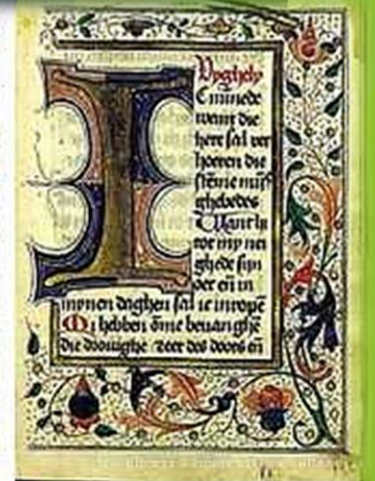 I
Vyghely
C minnede
want die
here sal ver
hooren die
stēme mijs
ghebedes
Want hi
toe my nei
ghede sijn
oer eñ in
mijnen daghen sal ic inropē
Mi hebben ōme bevanghē
die drouighe zeer des doots eñ